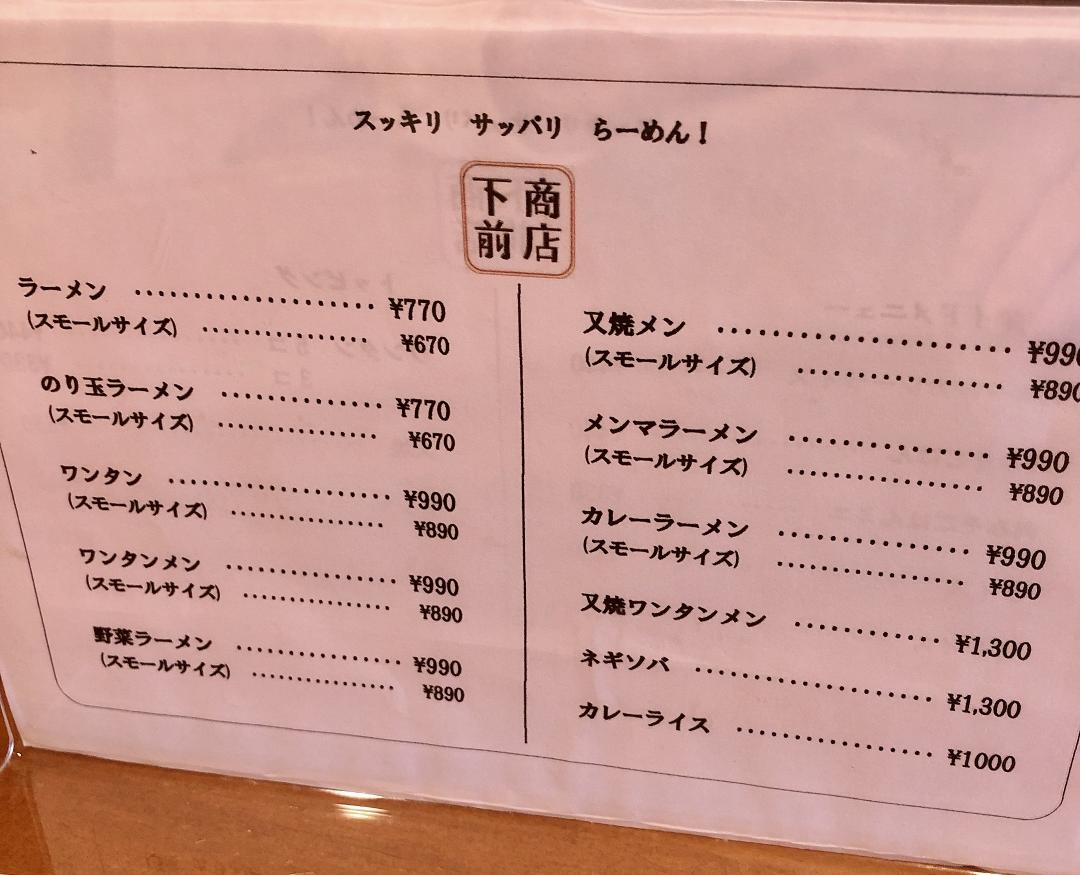 スッキリ サッパリ らーめん！
下前
商店
ラーメン ¥770
(スモールサイズ) ¥670
のり玉ラーメン ¥770
(スモールサイズ) ¥670
ワンタン ¥990
(スモールサイズ) ¥890
ワンタンメン ¥990
(スモールサイズ) ¥890
野菜ラーメン ¥990
(スモールサイズ) ¥890
叉焼メン ¥990
(スモールサイズ) ¥890
メンマラーメン ¥990
(スモールサイズ) ¥890
カレーラーメン ¥990
(スモールサイズ) ¥890
叉焼ワンタンメン ¥1,300
ネギソバ ¥1,300
カレーライス ¥1000